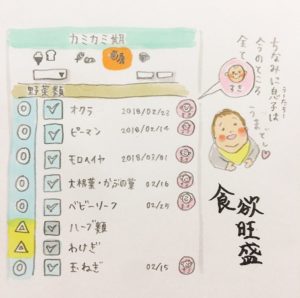 カミカミ期
野菜類
オクラ 2018/02/23
ピーマン
モロヘイヤ 2018/03/01
大根葉・かぶの葉 02/16
ベビーリーフ
ハーブ類
わけぎ
玉ねぎ 02/15
ちなみに息子は
今のところ
全て
すき
食欲旺盛